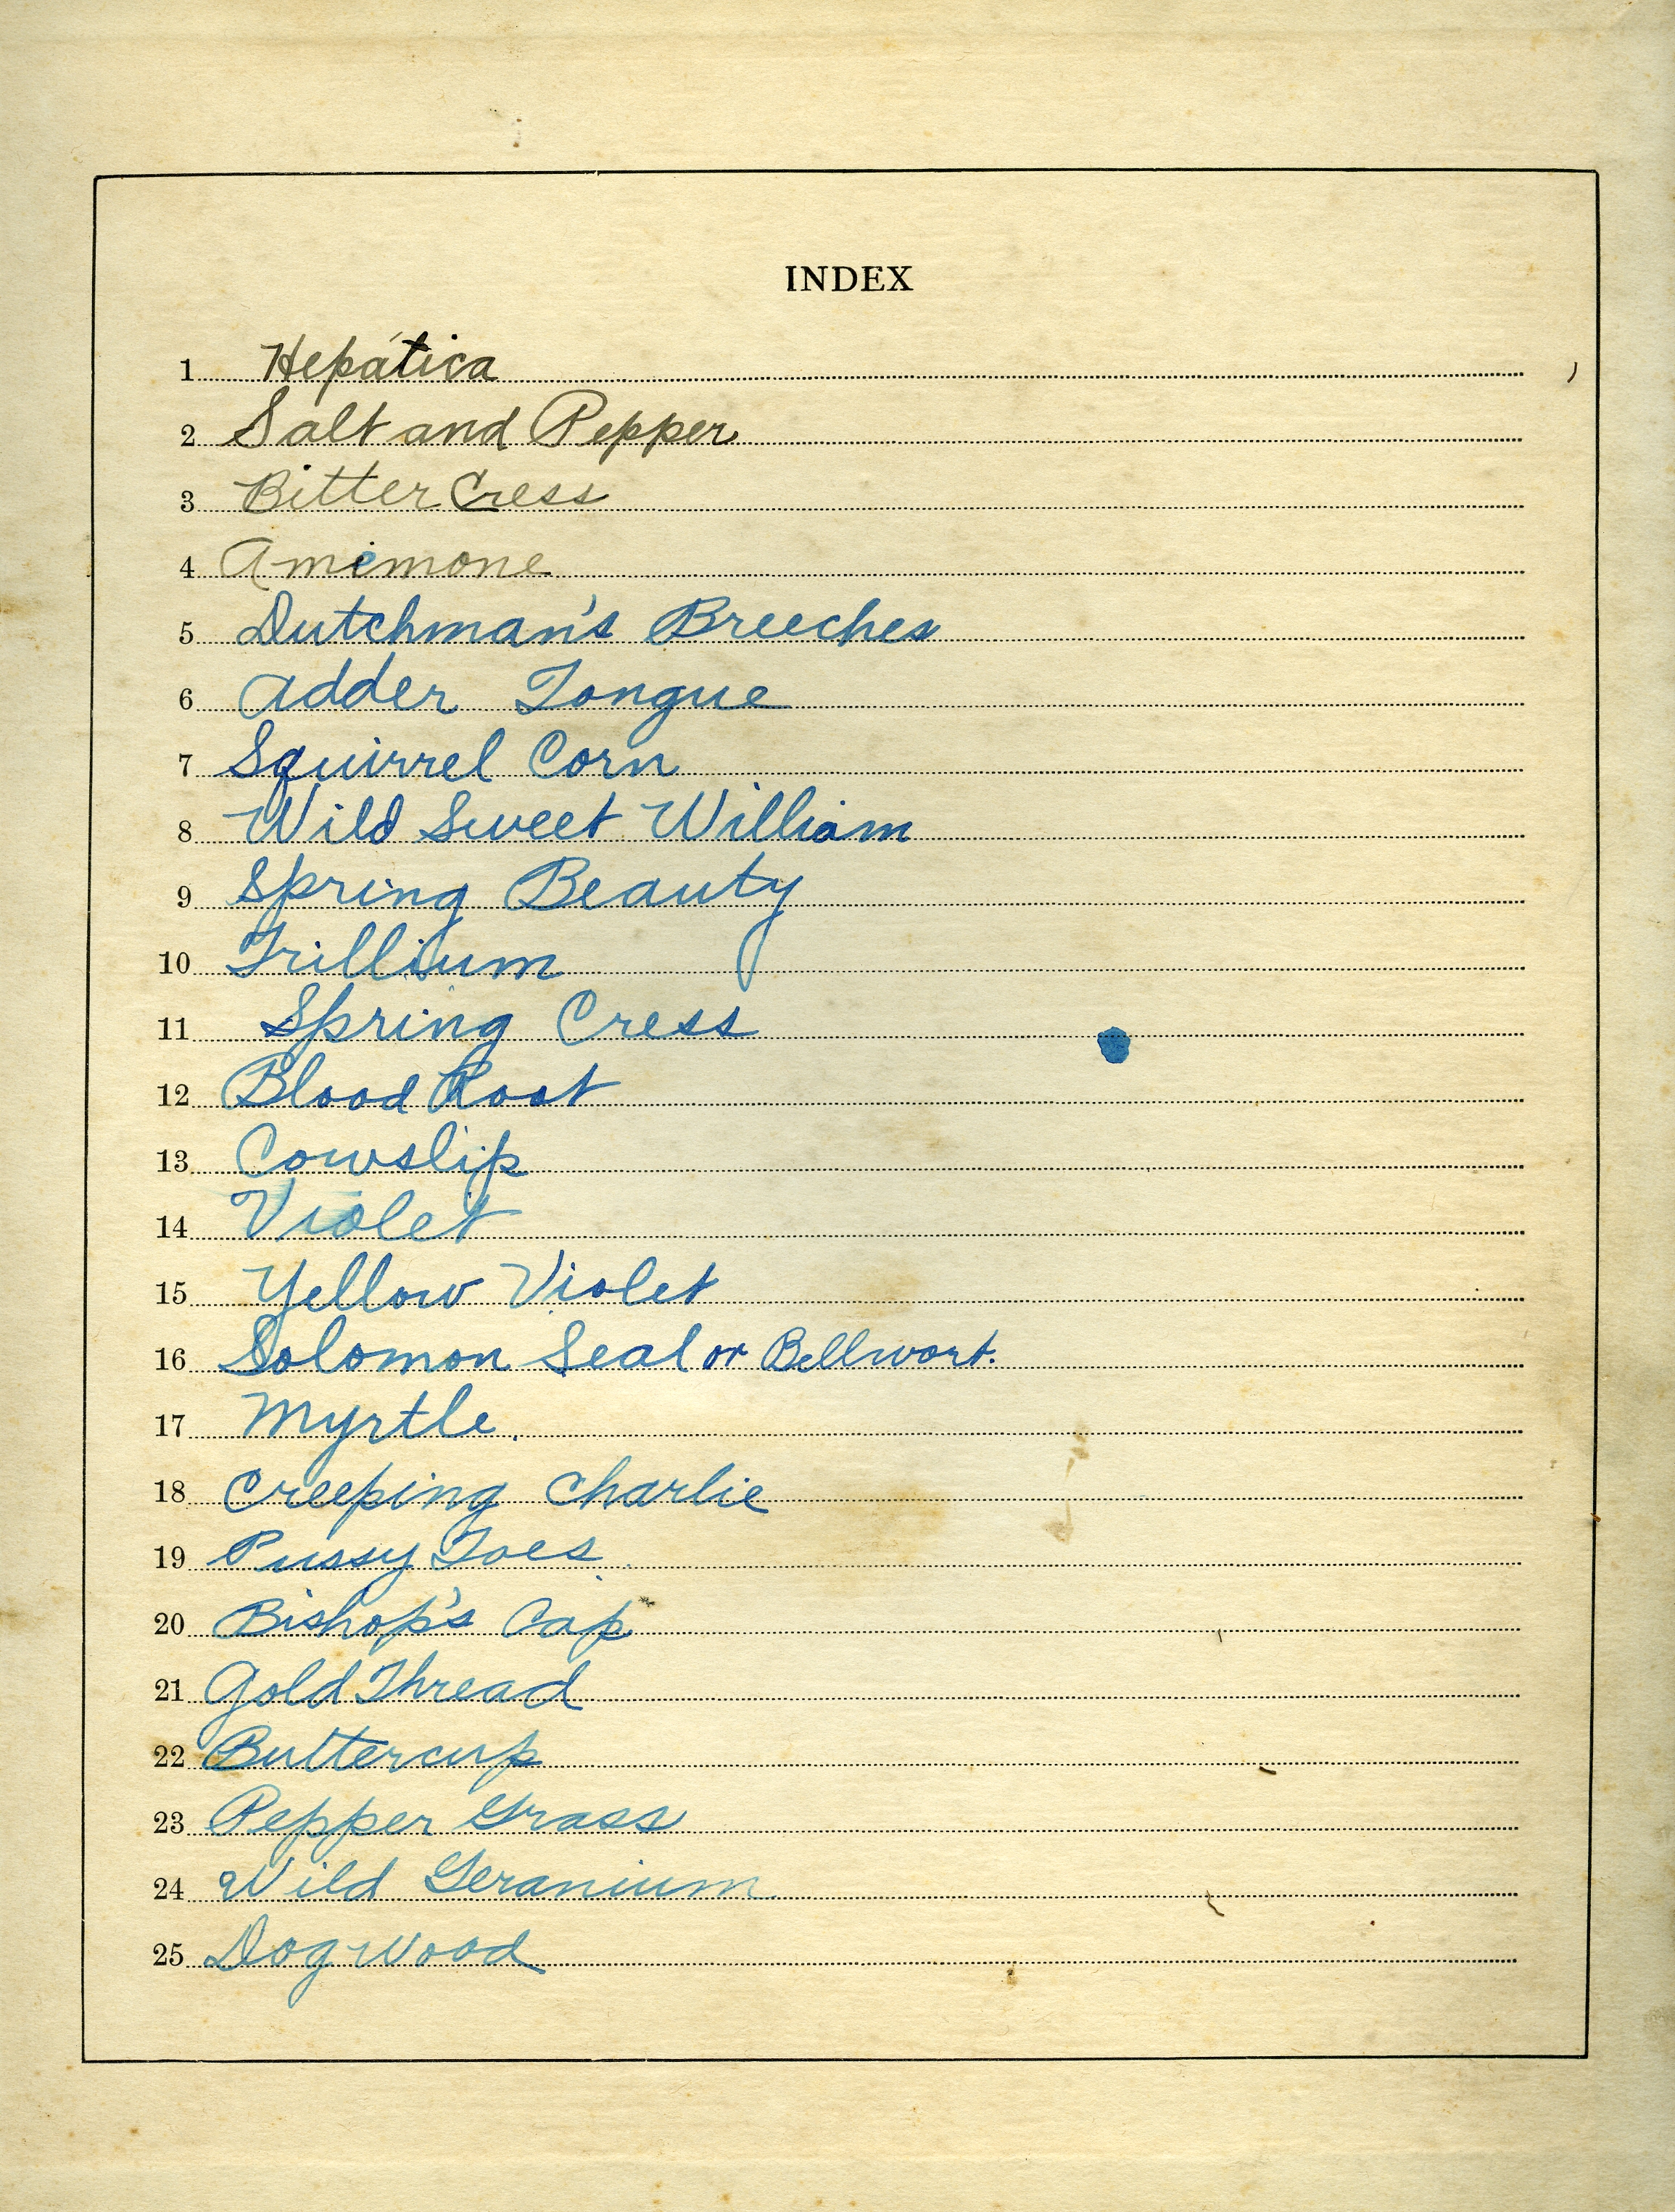 INDEX
1 Hepatica
2 Salt and Pepper
3 Bitter Cress
4 Amemone
5 Dutchman's Breeches
6 Adder Tongue
7 Squirrel Corn
8 Wild Sweet William
9 Spring Beauty
10 Trillium
11 Spring Cress
12 Blood Root
13 Cowslip
14 Violet
15 Yellow Violet
16 Solomon Seal or Bellwort.
17 Myrtle.
18 Creeping Charlie
19 Pussy Toes
20 Bishop's Cap
21 Gold Thread
22 Buttercup
23 Pepper Grass
24 Wild Geranium
25 Dogwood